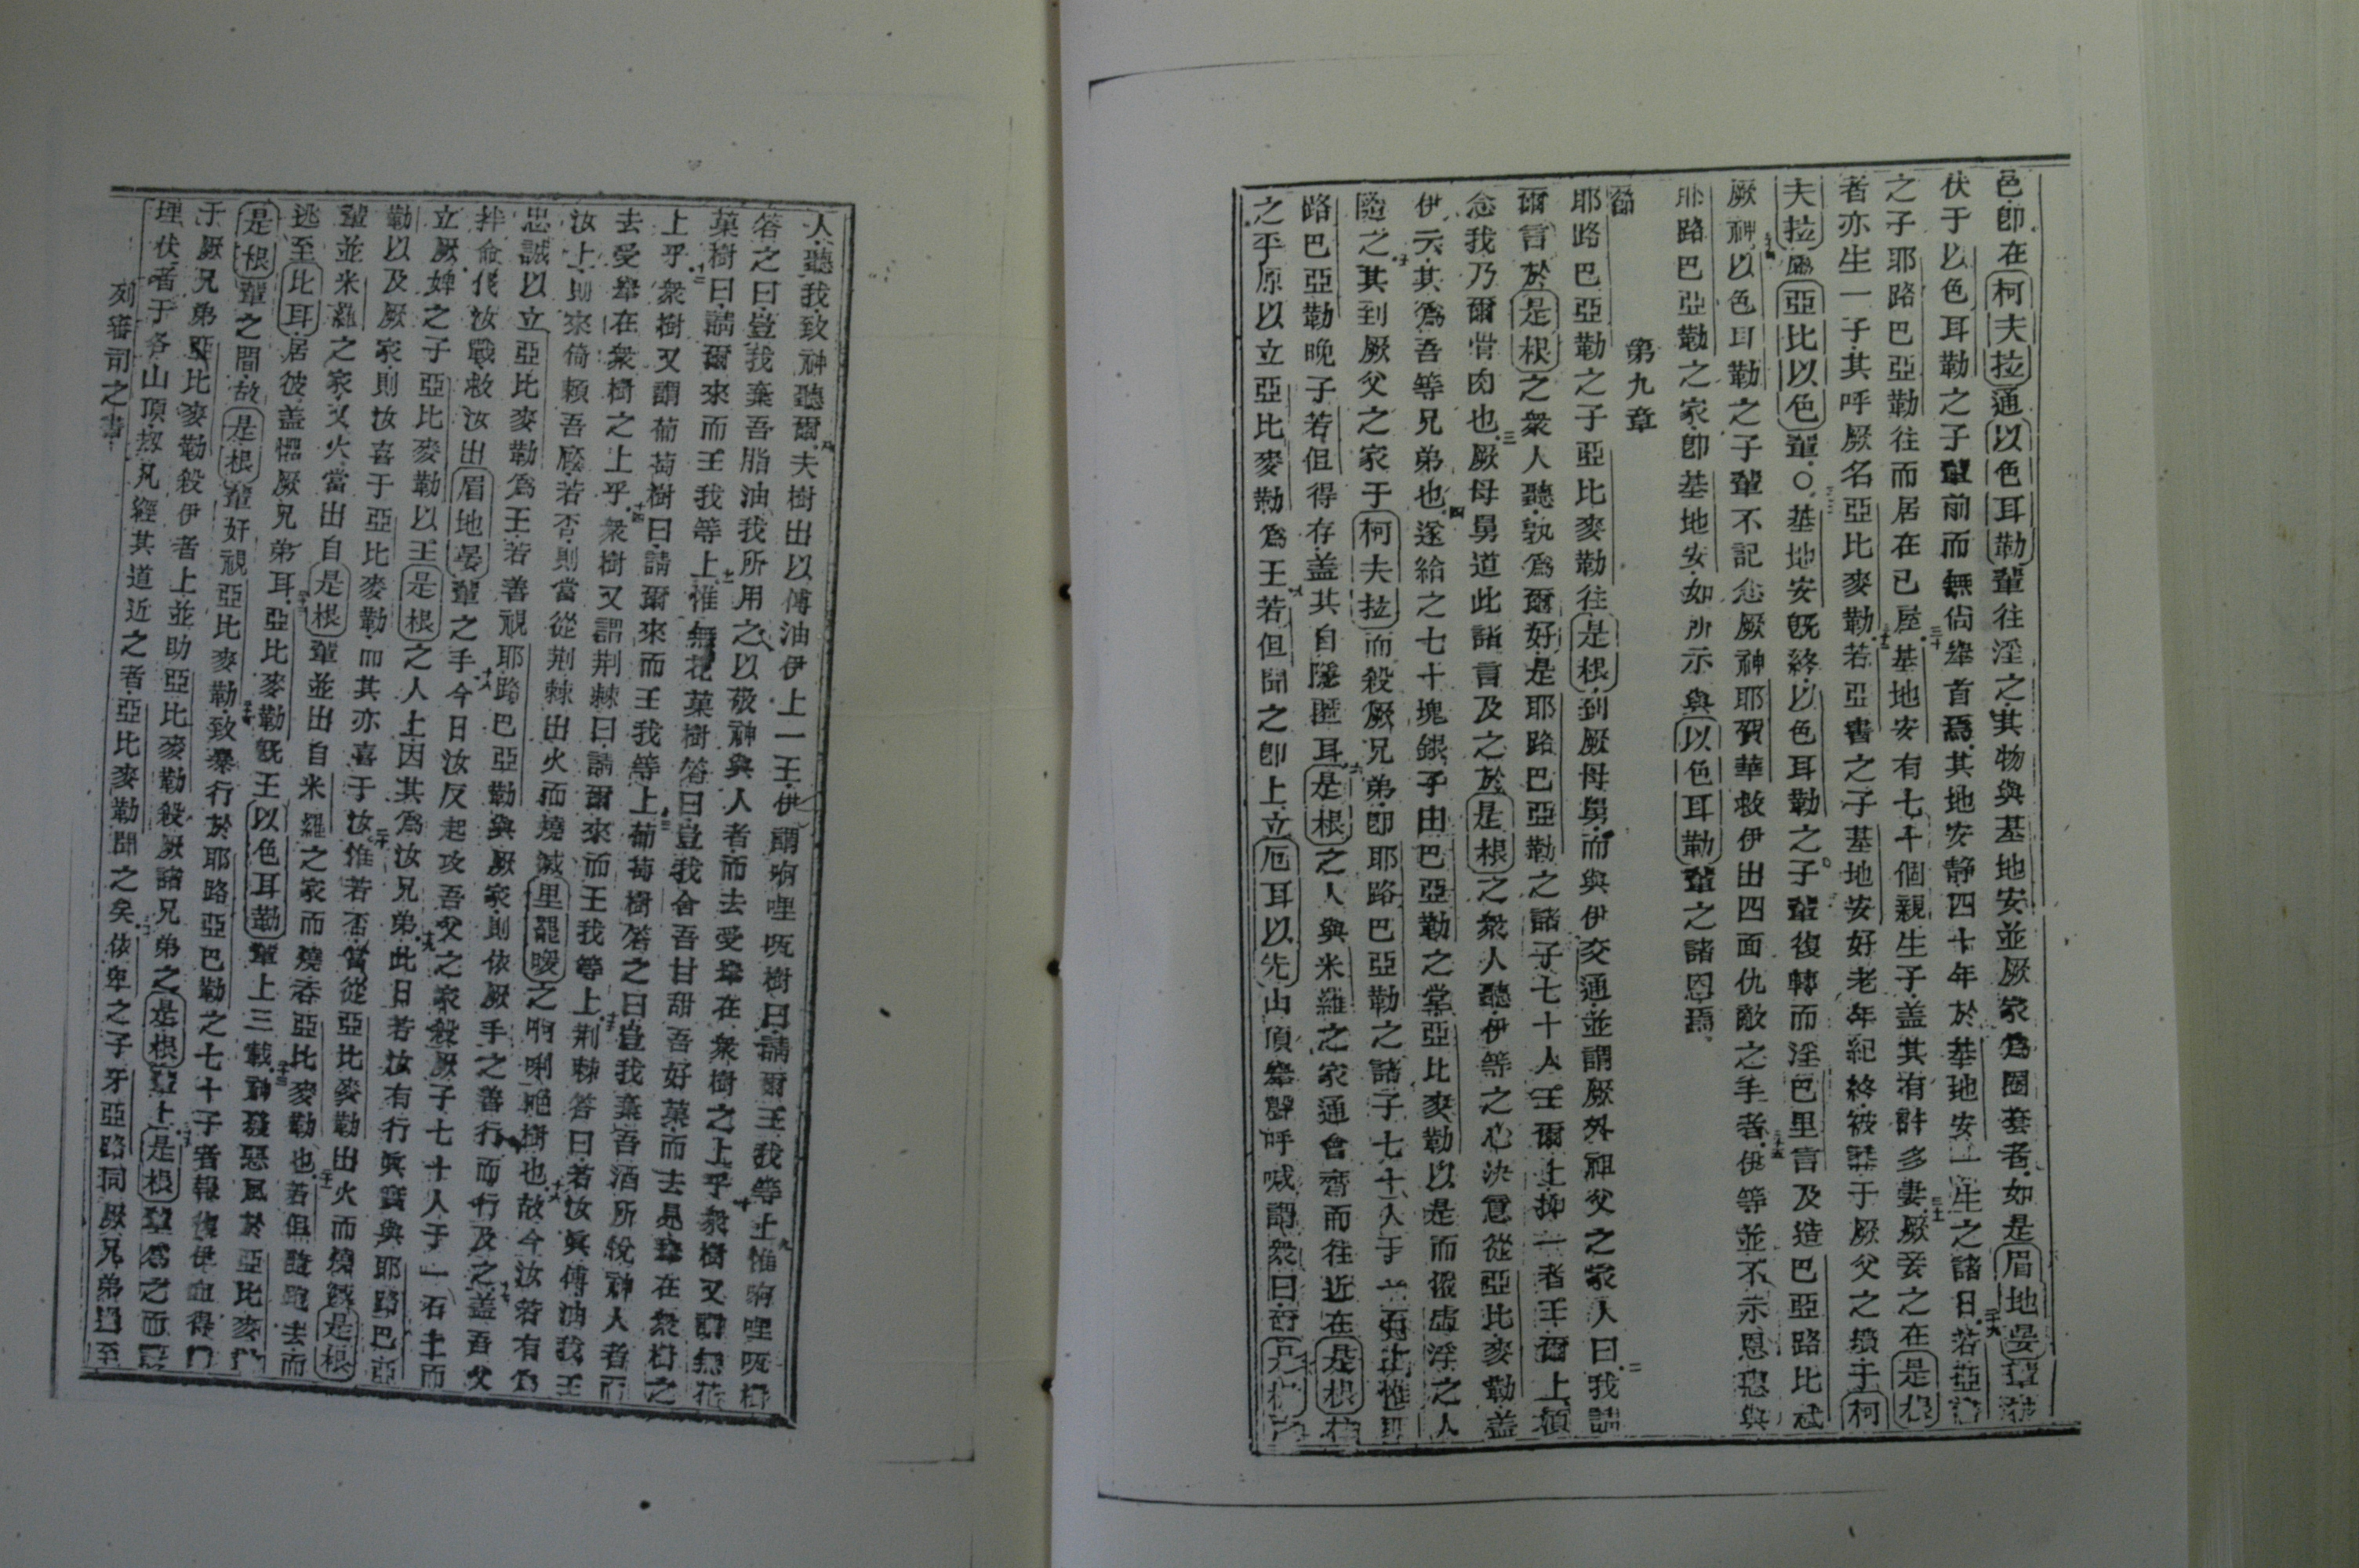 邑即在柯夫拉通以色耳勒輩往淫之其物與基地安並厥家為圈套者如是眉地晏輩
伏于以色耳勒之子輩前而無尚舉首焉其地安靜四十年於基地安一生之諸日二十九若亞
之子耶路巴亞勒往而居在已屋三十基地安有七十個親生子蓋其有許多妻三十一厥妾之在是根
者亦生一子其呼厥名亞比麥勒三十二若亞書之子基地安好老年紀終被葬于厥父之墳于柯
夫拉屬亞比以色輩○三十三基地安既終以色耳勒之子輩復轉而淫巴里言及造巴亞路比
厥神三十四以色耳勒之子輩不記念厥神耶賀華救伊出四面仇敵之手者三十五伊等並不示恩與
耶路巴亞勒之家即基地安如所示與以色耳勒輩之諸恩焉
第九章
節
耶路巴亞勒之子亞比麥勒往是根到厥母舅而與伊交通並謂厥外祖父之家人曰二我請
爾言於是根之衆人聽孰為爾好是耶路巴亞勒之諸子七十人王爾上抑一者王爾上須
念我乃爾骨肉也三厥母舅道此諸言及之於是根之衆人聽伊等之心決意從亞比麥勒蓋
伊云其為吾等兄弟也四遂給之七十塊銀子由巴亞勒之堂亞比麥勒以是而僱虛浮之人
隨之五其到厥父之家于柯夫拉而殺厥兄弟即耶路巴亞勒之諸子七十人于一石上惟耶
路巴亞勒晚子若但得存蓋其自隱匿耳六是根之人與米羅之家通會齊而往近在是根在
之平原以立亞比麥勒為王七若但聞之即上立厄耳以先山頂舉聲呼喊謂衆曰是根
人聽我致神聽爾八夫樹出以傅油伊上一王伊謂哬哩㕮樹曰請爾王我等上九惟哬哩㕮樹
答之曰豈我棄吾脂油我所用之以敬神與人者而去受舉在衆樹之上乎十衆樹又謂無花
菓樹曰請爾來而王我等上十一惟無花菓樹答曰豈我舍吾甘甜吾好菓而去見舉在衆樹之
上乎十二衆樹又謂葡萄樹曰請爾來而王我等上十三葡萄樹答之曰豈我棄吾酒所悅神人者而
去受舉在衆樹之上乎十四衆樹又謂荆棘曰請爾來而王我等上十五荆棘答曰若汝眞傅油我王
汝上則來倚賴吾廕若否則當從荆棘出火而燒滅里罷暖之哬唎吔樹也十六故今汝若有為
忠誠以立亞比麥勒為王若善視耶路巴亞勒與厥家則依厥手之善行而行及之十七蓋吾父
拌命代汝戰救汝出眉地晏輩之手十八今日汝反起攻吾父之家殺厥子七十人于一石上而
立厥婢之子亞比麥勒以王是根之人上因其為汝兄弟十九此日若汝有行眞實與耶路巴亞
勒以及厥家則汝喜于亞比麥勒而其亦喜于汝二十惟若否當從亞比麥勒出火而燒滅是根
輩並米羅之家又火當出自是根輩並出自米羅之家而燒吞亞比麥勒也二十一若但跑去而
逃至比耳居彼蓋懼厥兄弟耳二十二亞比麥勒既王以色耳勒輩上三載二十三神發惡風於亞比麥勒
是根輩之間故是根輩奸視亞比麥勒二十四致暴行於耶路亞巴勒之七十子者報復伊血得
于厥兄弟亞比麥勒殺伊者上並助亞比麥勒殺厥諸兄弟之是根輩上二十五是根輩為之而
埋伏者于各山頂刼凡經其道近之者亞比麥勒聞之矣二十六依卑之子牙亞路同厥兄弟過至
列審司之書